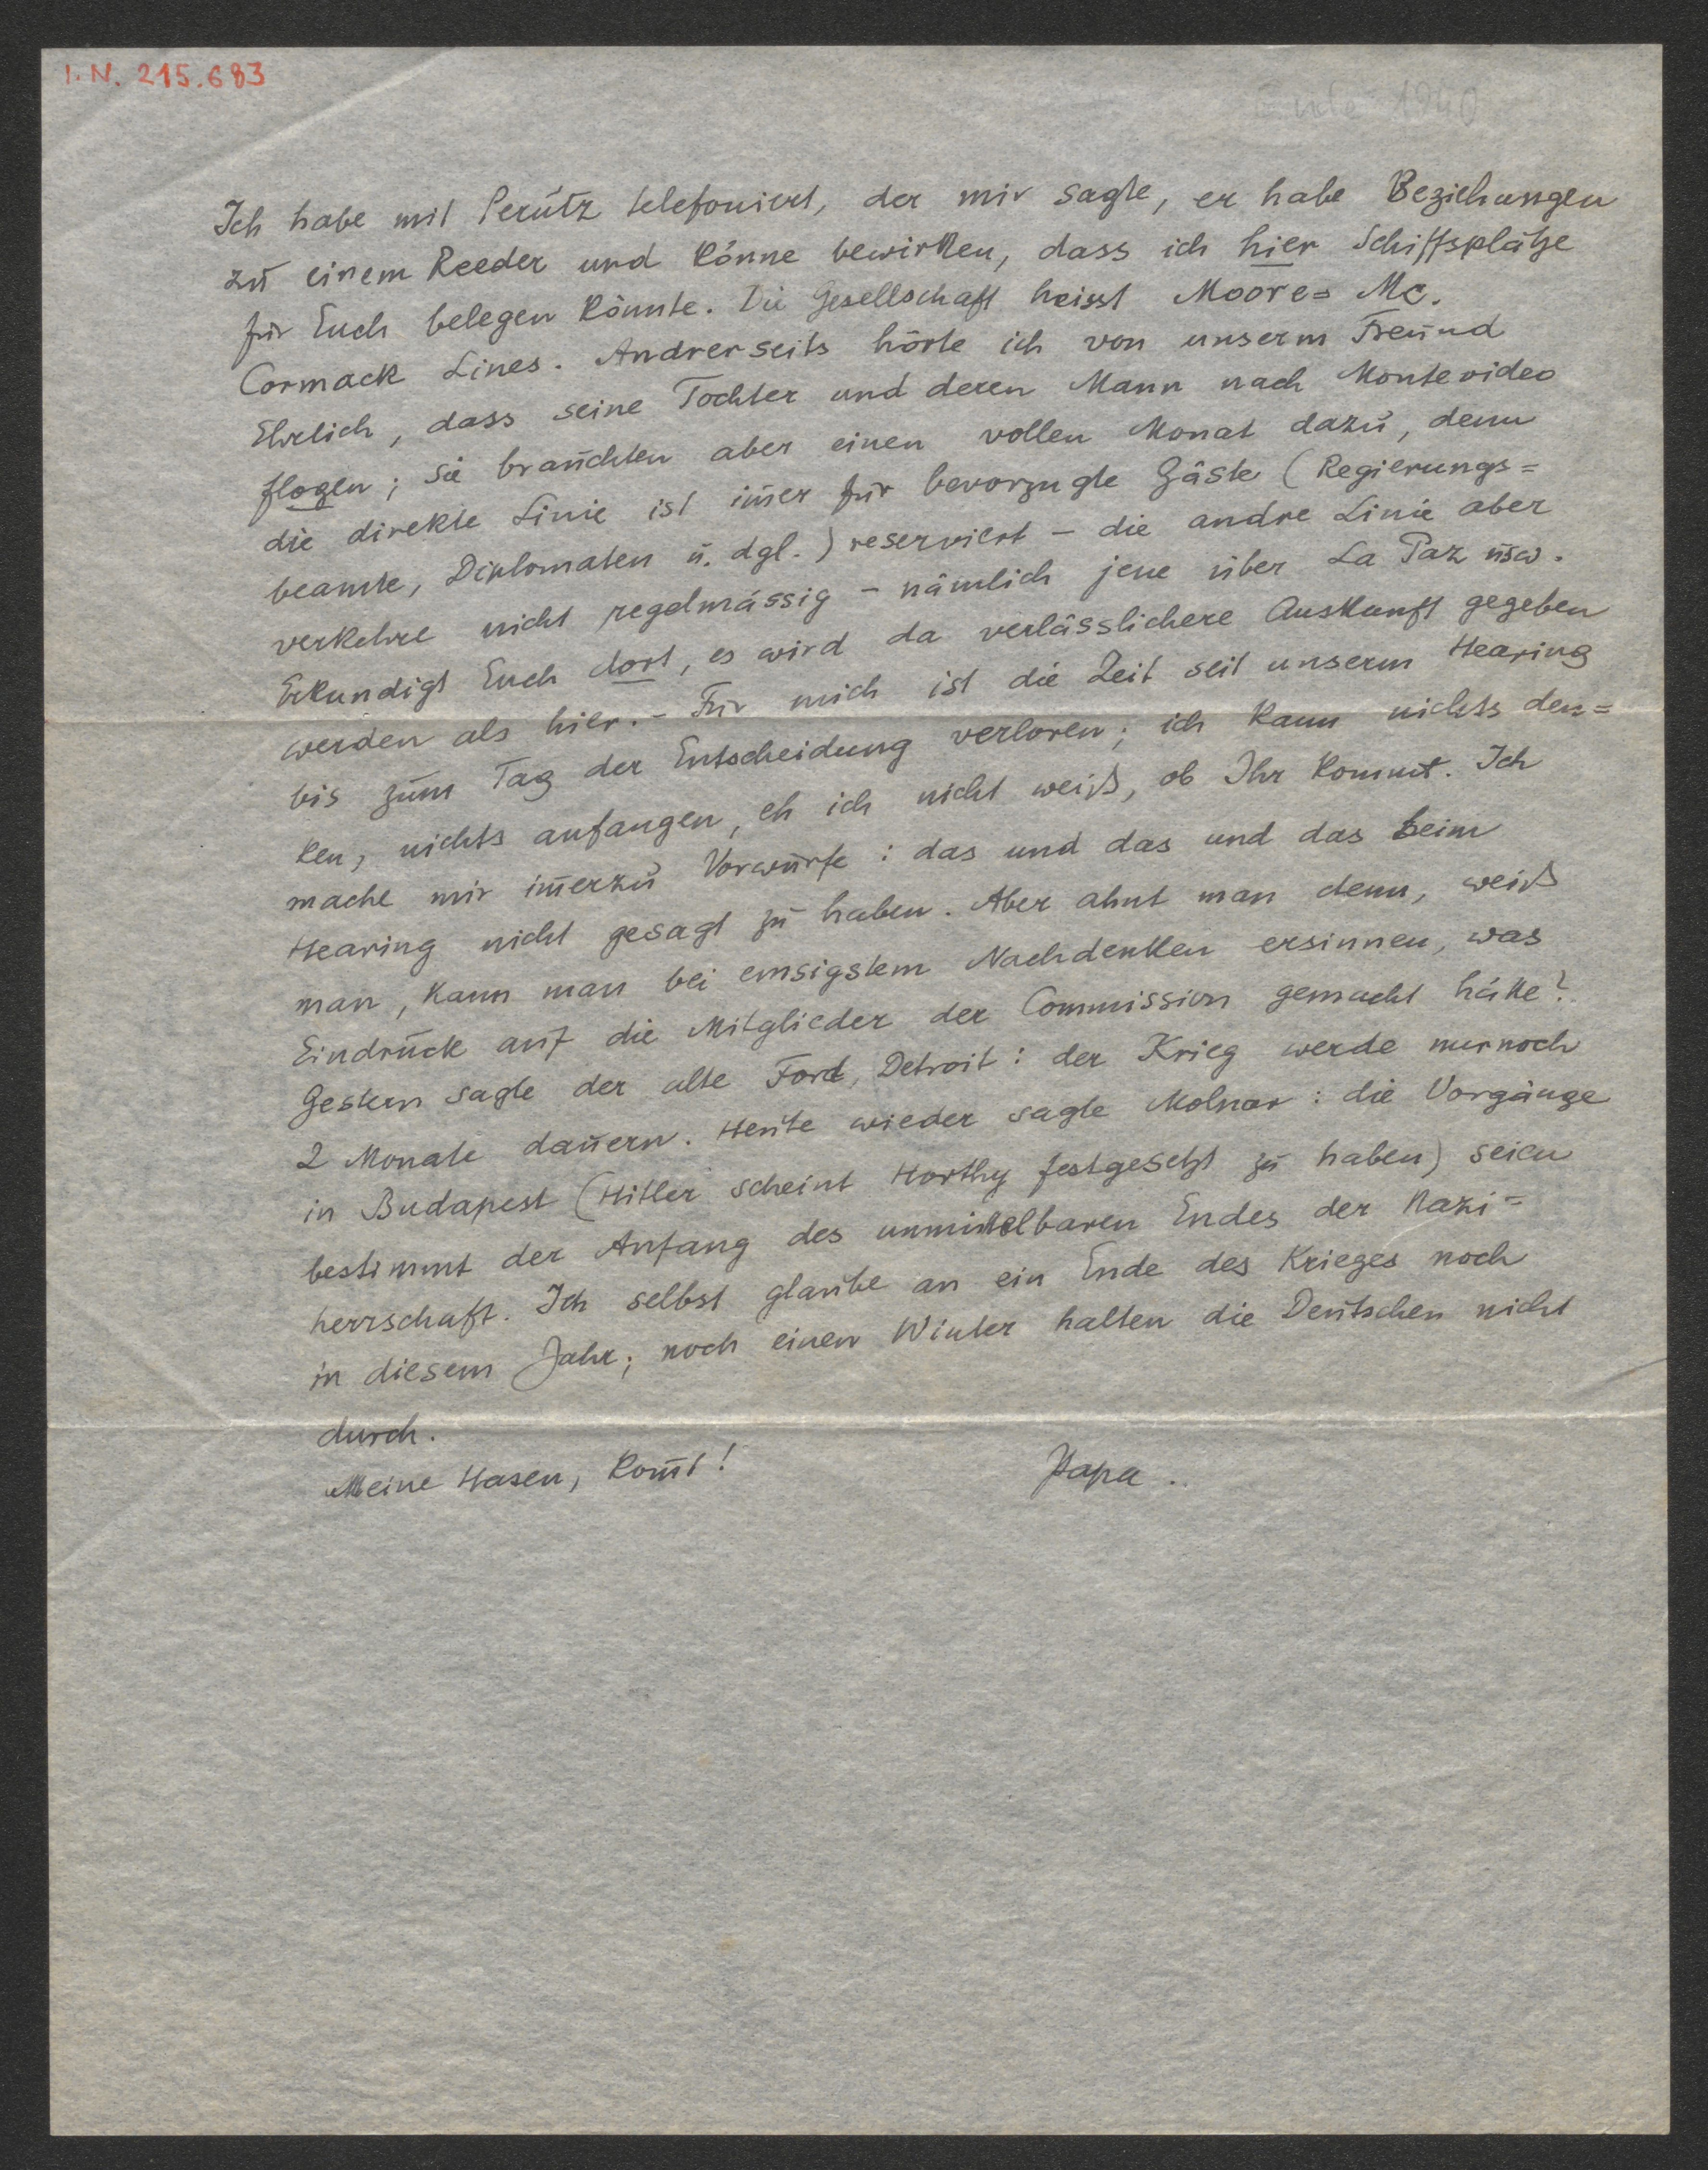 I. N. 215.683
Ende 1940
Ich habe mit Perutz telefoniert, der mir sagte, er habe Beziehungen
zu einem Reeder und könne bewirken, dass ich hier Schiffsplätze
für Euch belegen könnte. Die Gesellschaft heisst Moore= Mc.
Cormack Lines. Andrerseits hörte ich von unserm Freund
Ehrlich, dass seine Tochter und deren Mann nach Montevideo
flogen; sie brauchten aber einen vollen Monat dazu, denn
die direkte Linie ist im̄er für bevorzugte Gäste (Regierungs=
beamte, Diplomaten u. dgl.) reserviert – die andre Linie aber
verkehre nicht regelmässig – nämlich jene über La Paz usw.
Erkundigt Euch dort, es wird da verlässlichere Auskunft gegeben
werden als hier. – Für mich ist die Zeit seit unserm Hearing
bis zum Tag der Entscheidung verloren; ich kann nichts den=
ken, nichts anfangen, eh ich nicht weiß, ob Ihr kommt. Ich
mache mir im̄erzu Vorwürfe: das und das und das beim
Hearing nicht gesagt zu haben. Aber ahnt man denn, weiß
man, kann man bei emsigstem Nachdenken ersinnen, was
Eindruck auf die Mitglieder der Commission gemacht hätte?
Gestern sagte der alte Ford, Detroit: der Krieg werde nurnoch
2 Monate dauern. Heute wieder sagte Molnar: die Vorgänge
in Budapest (Hitler scheint Horthy festgesetzt zu haben) seien
bestimmt der Anfang des unmittelbaren Endes der Nazi=
herrschaft. Ich selbst glaube an ein Ende des Krieges noch
in diesem Jahr; noch einen Winter halten die Deutschen nicht
durch.
Meine Hasen, kom̄t! Papa..